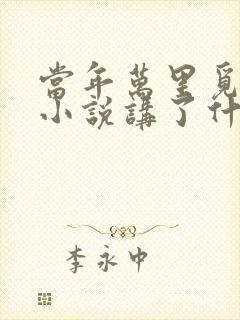 當年萬里覓
小說講了什
李永中